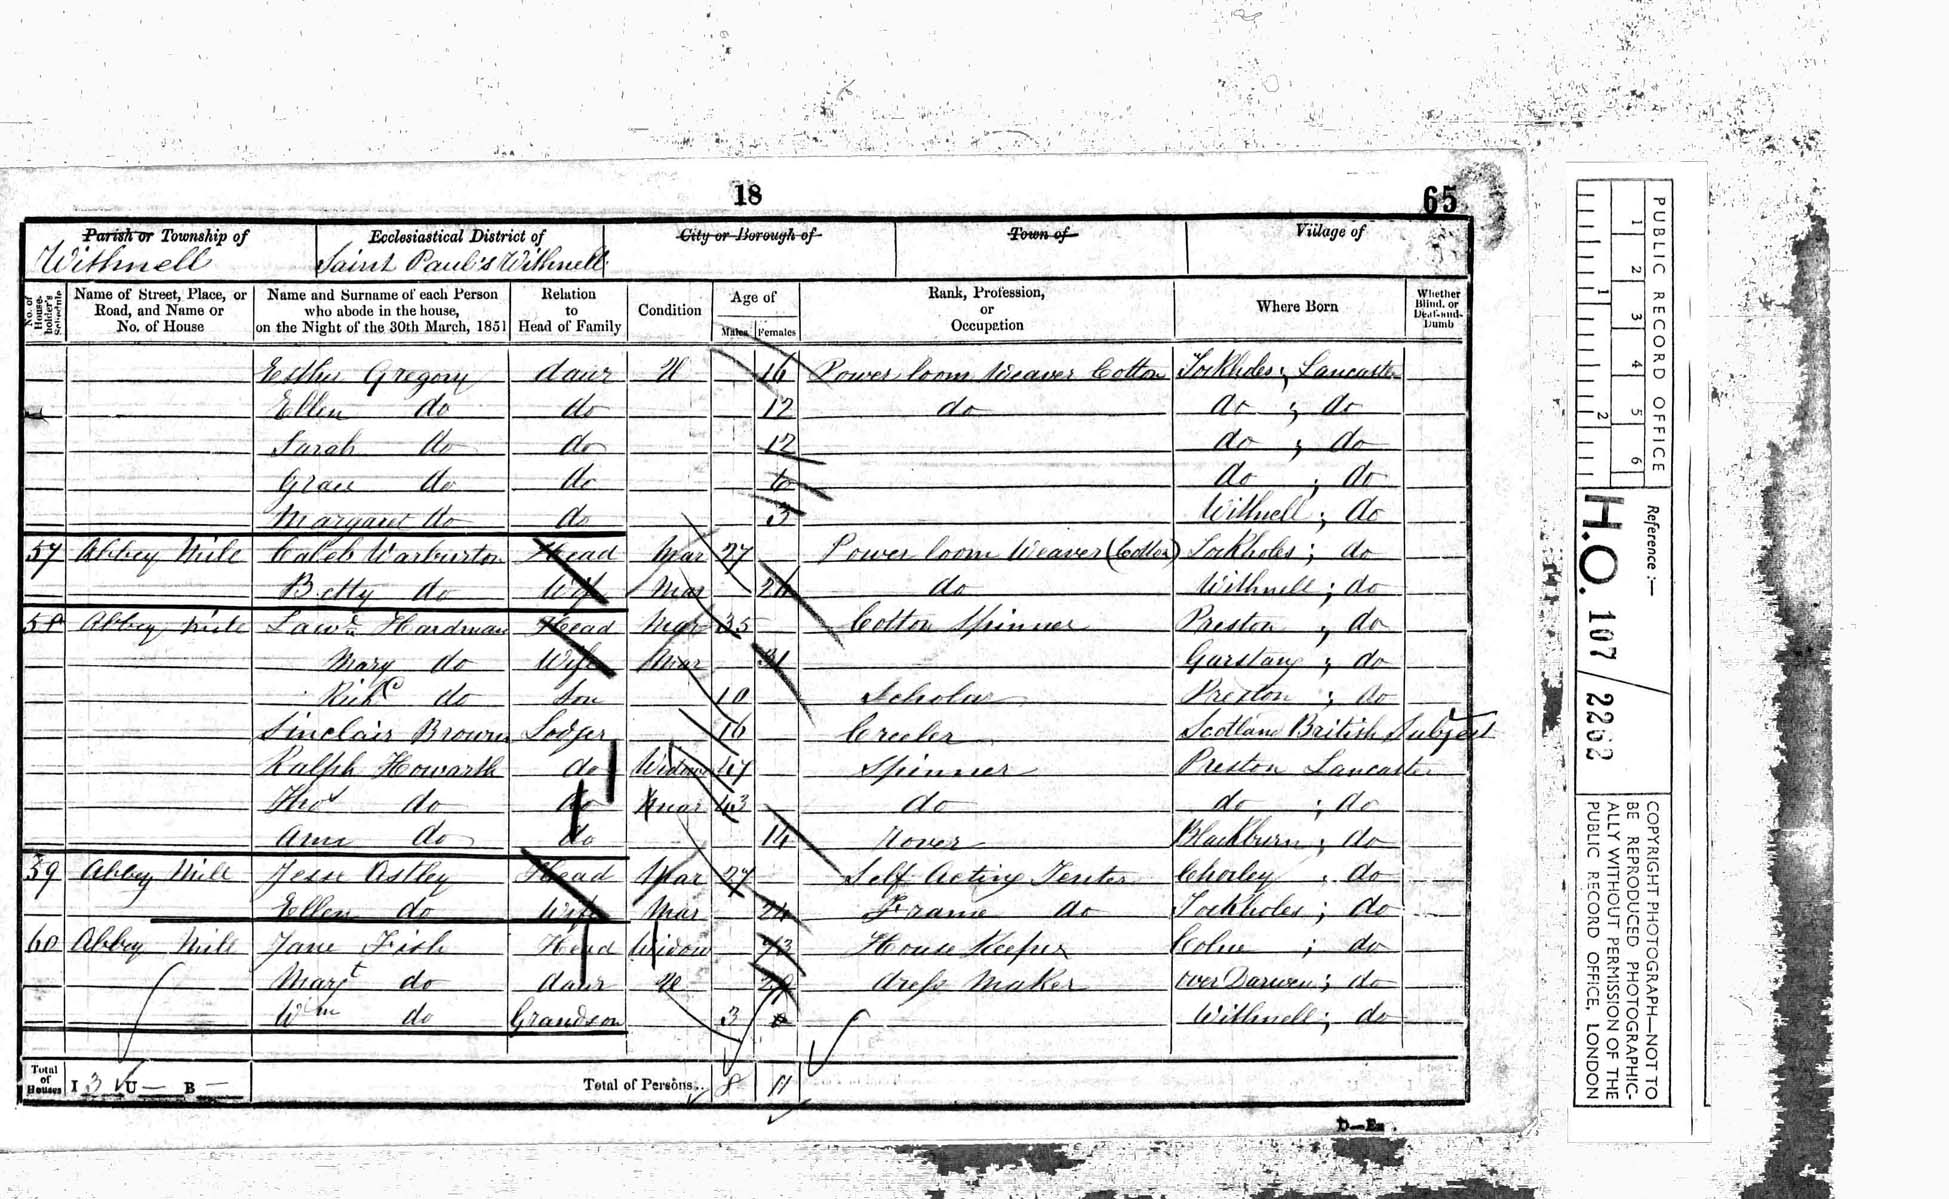 18
65
Parish or Township of Ecclesiastical District of City or Borough of Town of Village of
Withnell Saint Paul's Withnell
No. of Householder's Schedule Name of Street, Place, or Road, and Name or No. of House Name and Surname of each Person who abode in the house, on the Night of the 30th March, 1851 Relation to Head of Family Condition Age of Males Females Rank, Profession, or Occupation Where Born Whether Blind, or Deaf-and-Dumb
Esther Gregory daur U 16 Power loom Weaver Cotton Tockholes; Lancaster
Ellen do do 12 do do ; do
Sarah do do 12 do ; do
Grace do do 6 do ; do
Margaret do do 3 Withnell; do
57 Abbey Mill Caleb Warburton Head Mar 27 Power loom Weaver (Cotton) Tockholes; do
Betty do Wife Mar do Withnell; do
58 Abbey Mill Lawce Hardman Head Mar 35 Cotton Spinner Preston ; do
Mary do Wife Mar 31 Garstang ; do
Richd do Son 10 Scholar Preston ; do
Sinclair Brown Lodger 16 Creeler Scotland British Subject
Ralph Howarth do Widow 47 Spinner Preston Lancaster
Thos do do Mar 43 do do ; do
Ann do do 14 Rover Blackburn; do
59 Abbey Mill Jesse Astley Head Mar 27 Self Acting Tenter Chorley ; do
Ellen do Wife Mar 24 Frame do Tockholes; do
60 Abbey Mill Jane Fish Head Widow House Keeper Colne ; do
Margt do daur U dress Maker over Darwen; do
Wm do Grandson 3 Withnell; do
Total of Houses I 3 U — B — Total of Persons... 8 11
D—Eu.
PUBLIC RECORD OFFICE
1 2 3 4 5 6
1 2
Reference:—
H.O. 107/2262
COPYRIGHT PHOTOGRAPH—NOT TO BE REPRODUCED PHOTOGRAPHICALLY WITHOUT PERMISSION OF THE PUBLIC RECORD OFFICE, LONDON